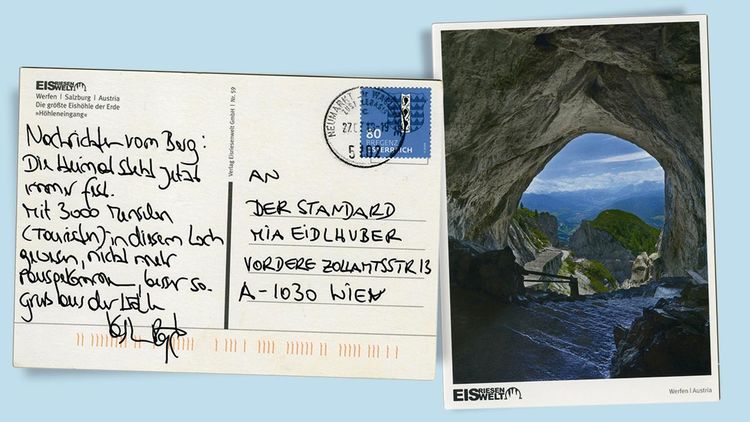 EISRIESENWELT
Werfen | Salzburg | Austria
Die größte Eishöhle der Erde
»Höhleneingang«
Nachrichten vom Berg:
Die Heimat steht jetzt
immer fest.
Mit 3000 Menschen
(Touristen) in diesem Loch
gewesen, nicht mehr
besser so.
Gruß aus der Höhle
Verlag Eisriesenwelt GmbH | Nr. 59
NEUMARKT
80
BREGENZ
ÖSTERREICH
AN
DER STANDARD
MIA EIDLHUBER
VORDERE ZOLLAMTSSTR 13
A-1030 WIEN
EISRIESENWELT
Werfen | Austria